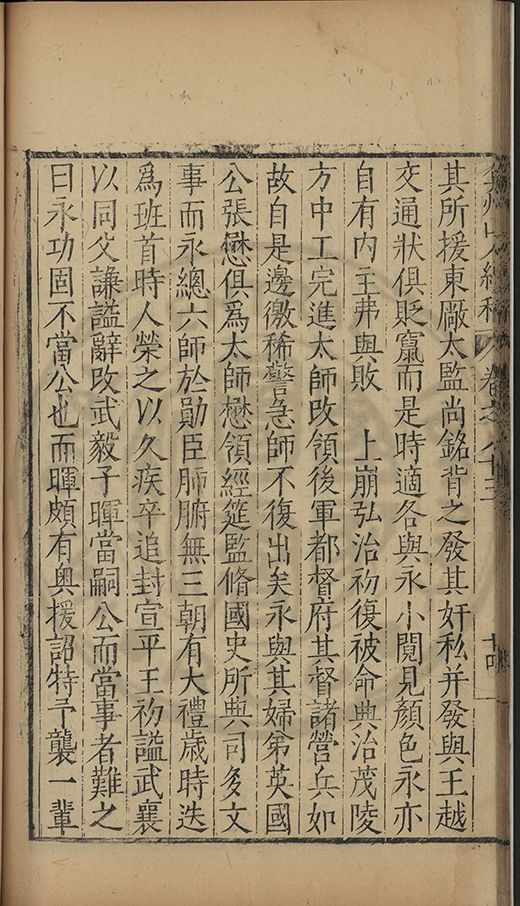 弇州山人續稿 卷之八十三
其所援東厰太監尚銘背之發其奸私并發與王越
交通狀俱貶竄而是時適各與永小閱見顏色永亦
自有內主弗與敗　上崩弘治初復被命典治茂陵
方中工完進太師改領後軍都督府其督諸營兵如
故自是邊徼稀警急師不復出矣永與其婦弟英國
公張懋俱爲太師懋領經筵監脩國史所典司多文
事而永總六師於勛臣肺腑無三朝有大禮歲時迭
爲班首時人榮之以久疾卒追封宣平王初謚武襄
以同父謙謚辭改武毅子暉當嗣公而當事者難之
曰永功固不當公也而暉頗有奥援詔特予襲一輩